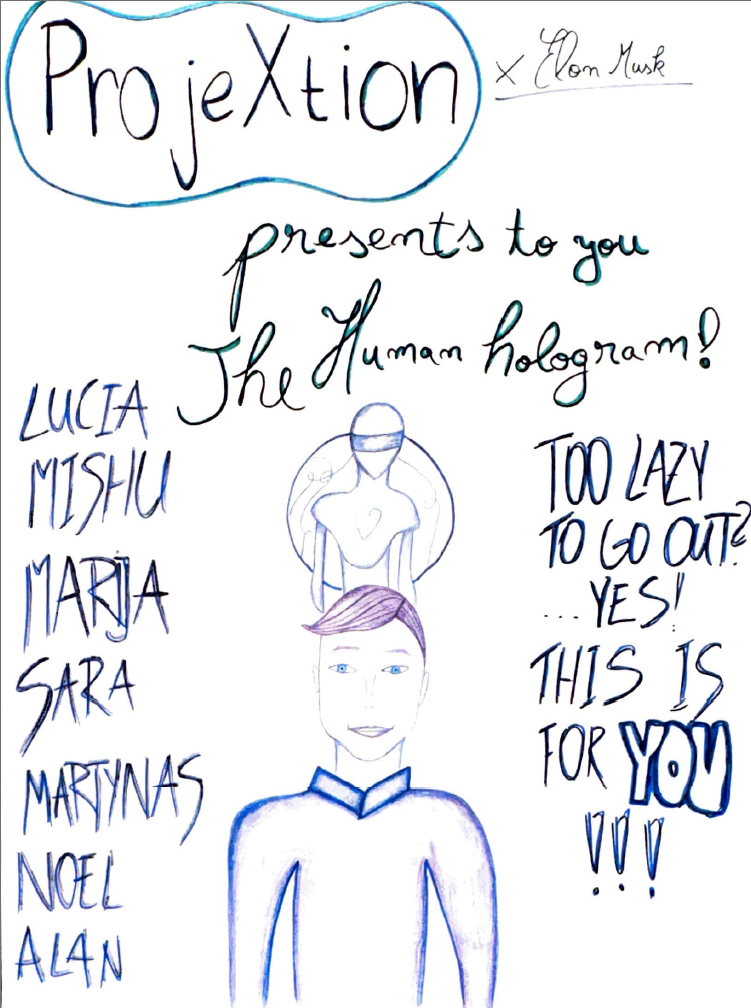 ProjeXtion
x Elon Musk
presents to you
The Human hologram!
LUCIA
MISHU
MARIJA
SARA
MARTYNAS
NOEL
ALAN
TOO LAZY
TO GO OUT?
...YES!
THIS IS
FOR YOU
!!!